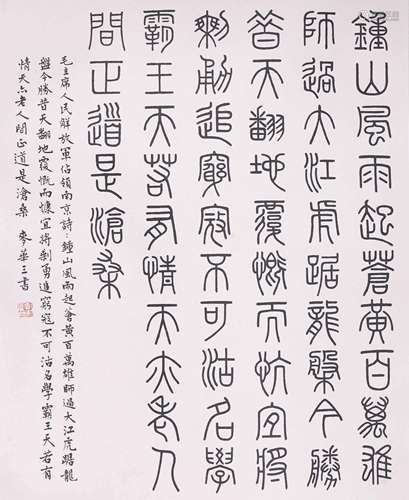 鍾山風雨起蒼黃百萬雄
師過大江虎踞龍盤今勝
昔天翻地覆慨而忼宜將
剩勇追窮寇不可沽名學
霸王天若有情天亦老人
間正道是滄桑
毛主席人民解放軍佔領南京詩：鍾山風雨起蒼黃百萬雄師過大江虎踞龍
盤今勝昔天翻地覆慨而慷宜將剩勇追窮寇不可沽名學霸王天若有
情天亦老人間正道是滄桑 麥華三書